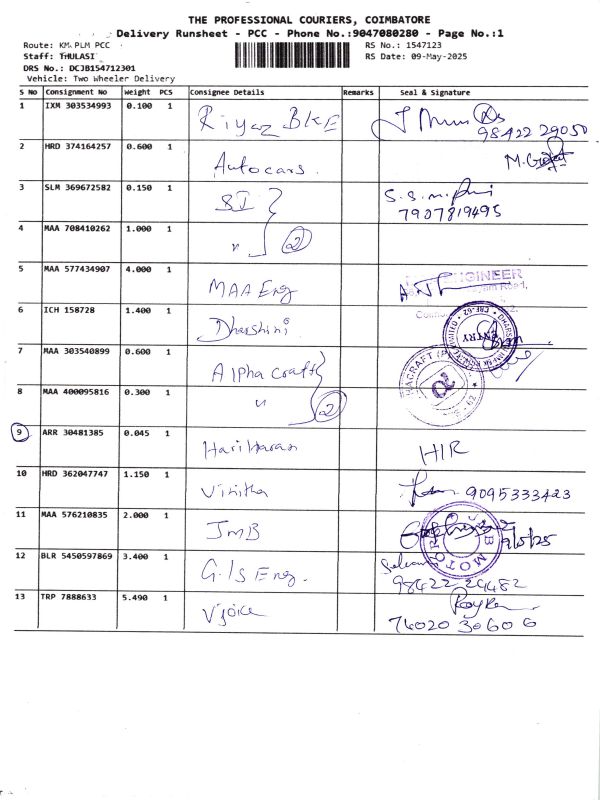 THE PROFESSIONAL COURIERS, COIMBATORE
Delivery Runsheet - PCC - Phone No.:9047080280 - Page No.:1
Route: KM PLM PCC
RS No.: 1547123
Staff: THULASI
RS Date: 09-May-2025
DRS No.: DCJB154712301
Vehicle: Two Wheeler Delivery
S No Consignment No Weight PCS Consignee Details Remarks Seal & Signature
1 IXM 303534993 0.100 1 Riyaz BKE 98422 29050
2 HRD 374164257 0.600 1 Autocars.
3 SLM 369672582 0.150 1 SI S.S.M. 7907819495
4 MAA 708410262 1.000 1 " 2
5 MAA 577434907 4.000 1 MAA Eng ENGINEER
6 ICH 158728 1.400 1 Dharshini ENTRY
7 MAA 303540899 0.600 1 Alpha craft
8 MAA 400095816 0.300 1 " 2
9 ARR 30481385 0.045 1 Hariharan HIR
10 HRD 362047747 1.150 1 Vinitha 9095333423
11 MAA 576210835 2.000 1 JMB
12 BLR 5450597869 3.400 1 G.I.S Eng. 98422 24482
13 TRP 7888633 5.490 1 Vjoice 74020 30606